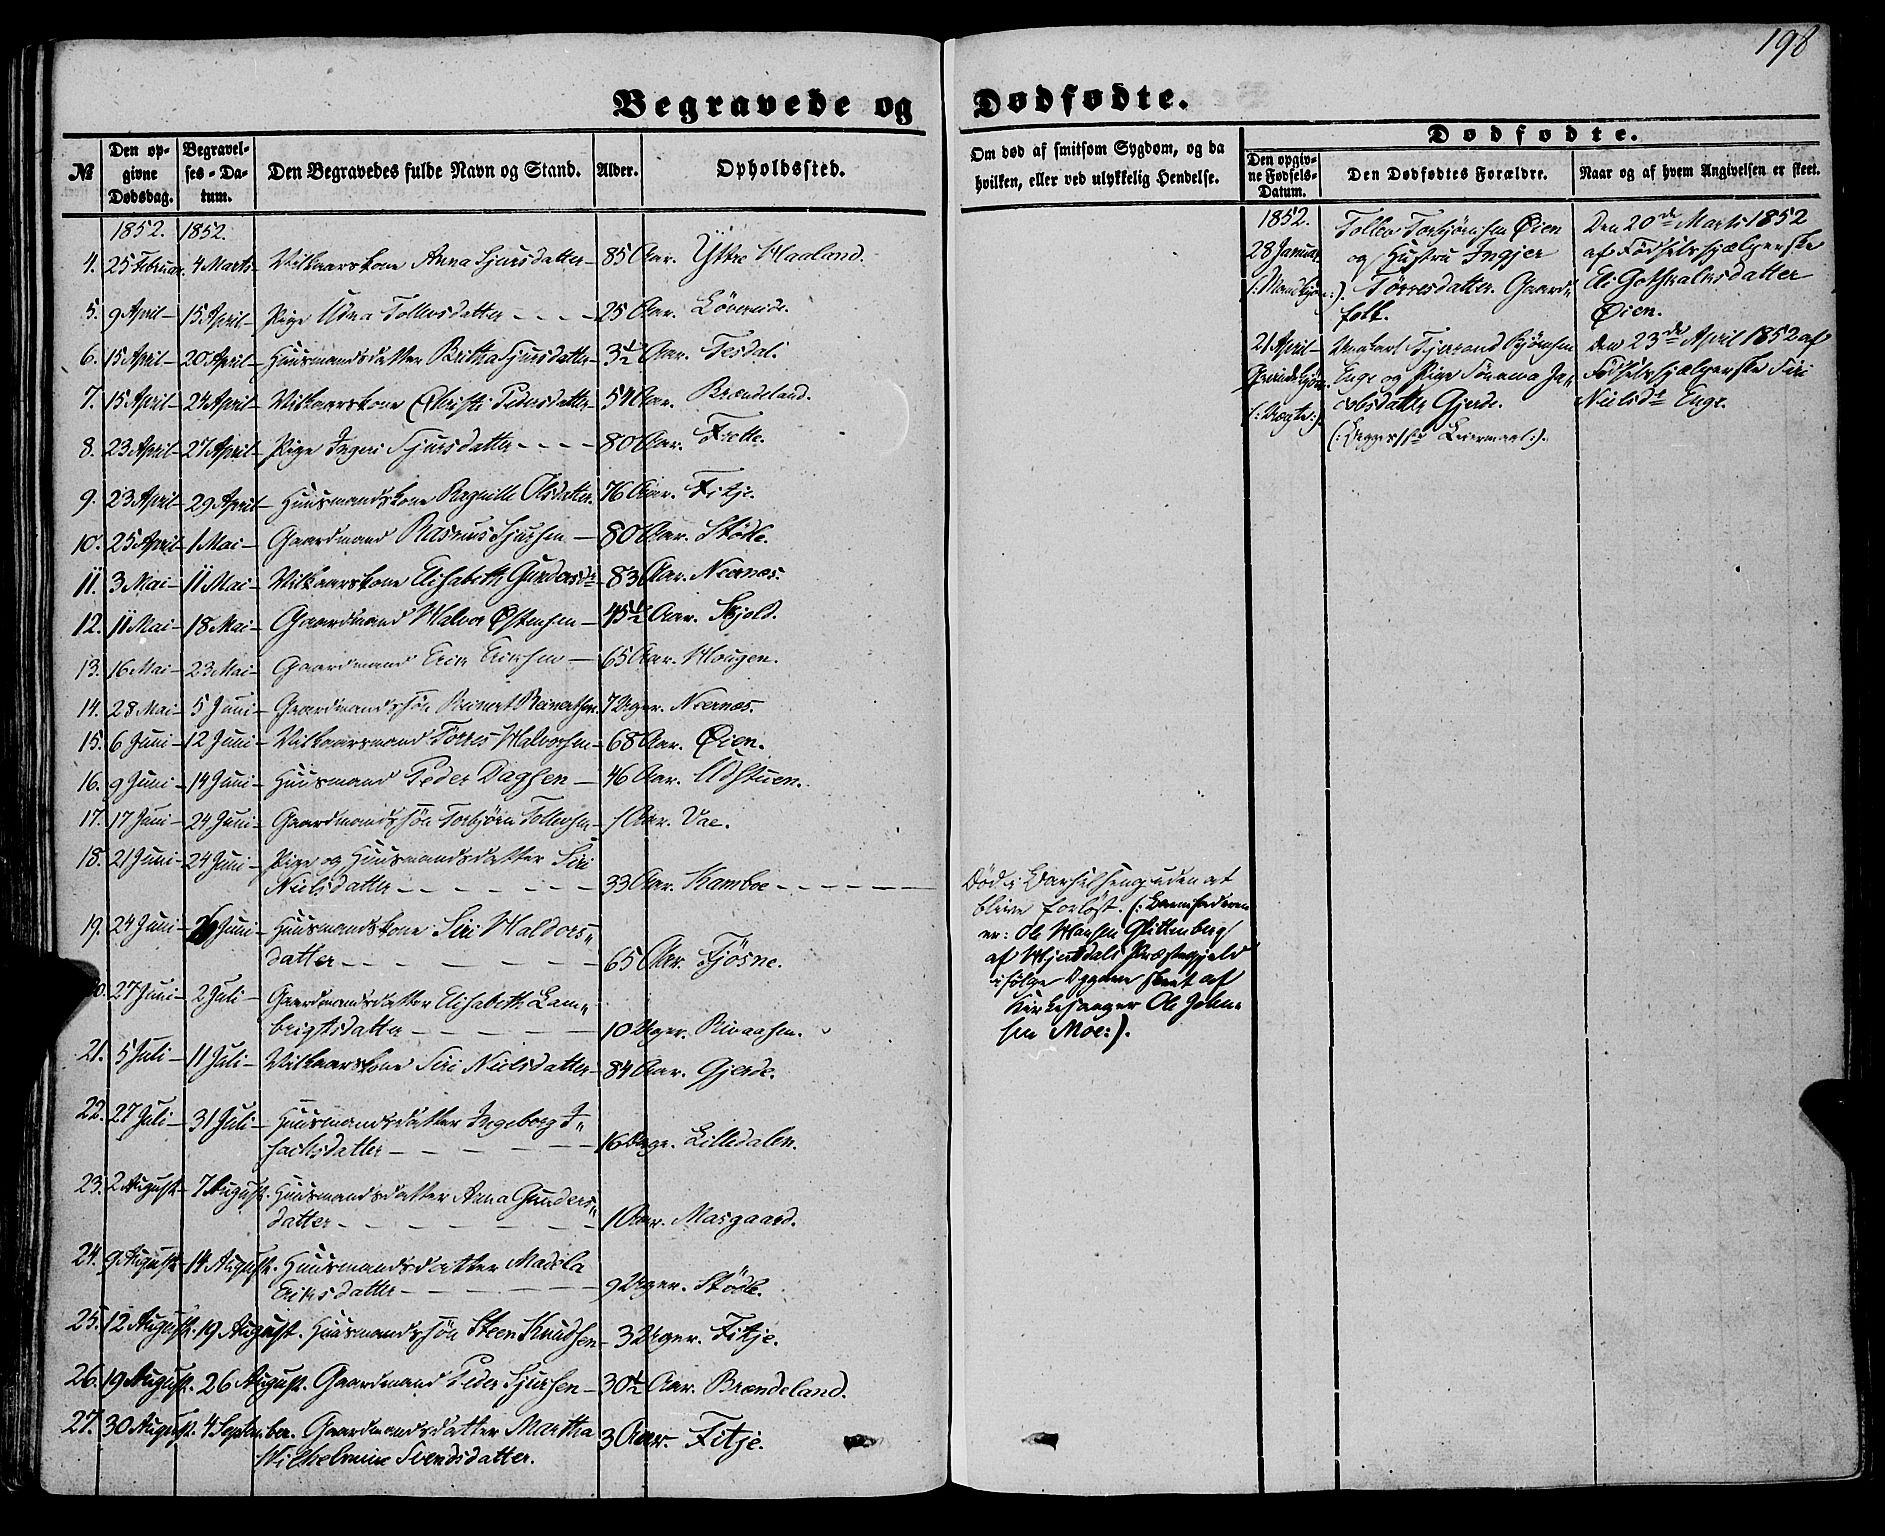 198
Begravede og Dødfødte.
№
Den opgivne Dødsdag.
Begravelses-Datum.
Den Begravedes fulde Navn og Stand.
Alder.
Opholdssted.
Om død af smitsom Sygdom, og da
hvilken, eller ved ulykkelig Hendelse.
Dødfødte.
Den opgivne Fødsels-Datum.
Den Dødfødtes Forældre.
Naar og af hvem Angivelsen er skeet.
1852. 1852.
4. 25 Februar 4 Marts Vilkaarskone Anna Sjursdatter 85 Aar. Yttre Haaland.
5. 9 April 15 April Pige Udna Tollevsdatter 25 Aar. Løvereide.
6. 15 April 20 April Huusmandsdatter Britha Sjursdatter 3½ Aar. Tesdal.
7. 15 April 24 April Vilkaarskone Christi Pedersdatter 54 Aar. Brændeland.
8. 23 April 27 April Pige Ingeri Sjursdatter 80 Aar. Frette.
9. 23 April 29 April Huusmandskone Ragnille Olsdatter 76 Aar. Fitje.
10. 25 April 1 Mai Gaardmand Rasmus Sjursen 80 Aar. Stødle.
11. 3 Mai 11 Mai Vilkaarskone Elisabeth Gundersdr 83 Aar. Neernes.
12. 11 Mai 18 Mai Gaardmand Halvor Østensen 45½ Aar. Skjold.
13. 16 Mai 23 Mai Gaardmand Erik Eriksen 65 Aar. Hougen.
14. 28 Mai 5 Juni Gaardmandssøn Reinert Reinertsen 7 Uger. Neernes.
15. 6 Juni 12 Juni Vilkaarsmand Tørres Halvorsen 68 Aar. Øien.
16. 9 Juni 14 Juni Huusmand Peder Dagsen 46 Aar. Udstuen.
17. 17 Juni 24 Juni Gaardmandssøn Torbjørn Tollevsen 1 Aar. Vae.
18. 21 Juni 24 Juni Pige og Huusmandsdatter Siri
Nielsdatter 33 Aar. Kamboe
19. 24 Juni 26 Juni Huusmandskone Siri Haldors-
datter 65 Aar. Fjøsne.
20. 27 Juni 2 Juli Gaardmandsdatter Elisabeth Lam-
brigtsdatter 10 Uger.
21. 5 Juli 11 Juli Vilkaarskone Siri Nielsdatter 84 Aar. Gjerde.
22. 27 Juli 31 Juli Huusmandsdatter Ingeborg I-
sachsdatter 16 Lilledalen.
23. 2 August 7 August. Huusmandsdatter Anna Gunders-
datter 1 Aar. Masgaard.
24. 9 August 14 August. Huusmandsdatter Madela
Eriksdatter 9 Uger. Stødle.
25. 12 August. 19 August. Huusmandssøn Steen Knudsen 3 Uger. Fitje.
26. 19 August. 26 August. Gaardmand Peder Sjursen 30½ Aar. Brændeland.
27. 30 August. 4 September. Gaardmandsdatter Martha
Wilhelmine Svendsdatter. 3 Aar. Fitje.
Død i Barselseng uden at
blive forløst. (: Barnefaderen
er: Ole Hansen
af Hjertdals Præstegjeld
ifølge Opgivn skeet af
Kirkesanger Ole John-
sen Moe:).
1852.
28 Januar
(: Mandkjøn :).
Tollev Torbjørnsen Øien
og Hustru Ingjer
Tørresdatter. Gaard-
folk.
Den 20de Marts 1852
af Fødselshjælperske
Eli Gothskalksdatter
Øien.
21 April
Qvindekjøn
(: Uægte :).
Ungkarl Tjerand Bjørnsen
Enge og Pige Sønneva Ja-
cobsdatter Gjerde.
(: Begges 1ste Leiermaal :).
Den 23de April 1852 af
Fødselshjælperske Siri
Nielsdr Enge.